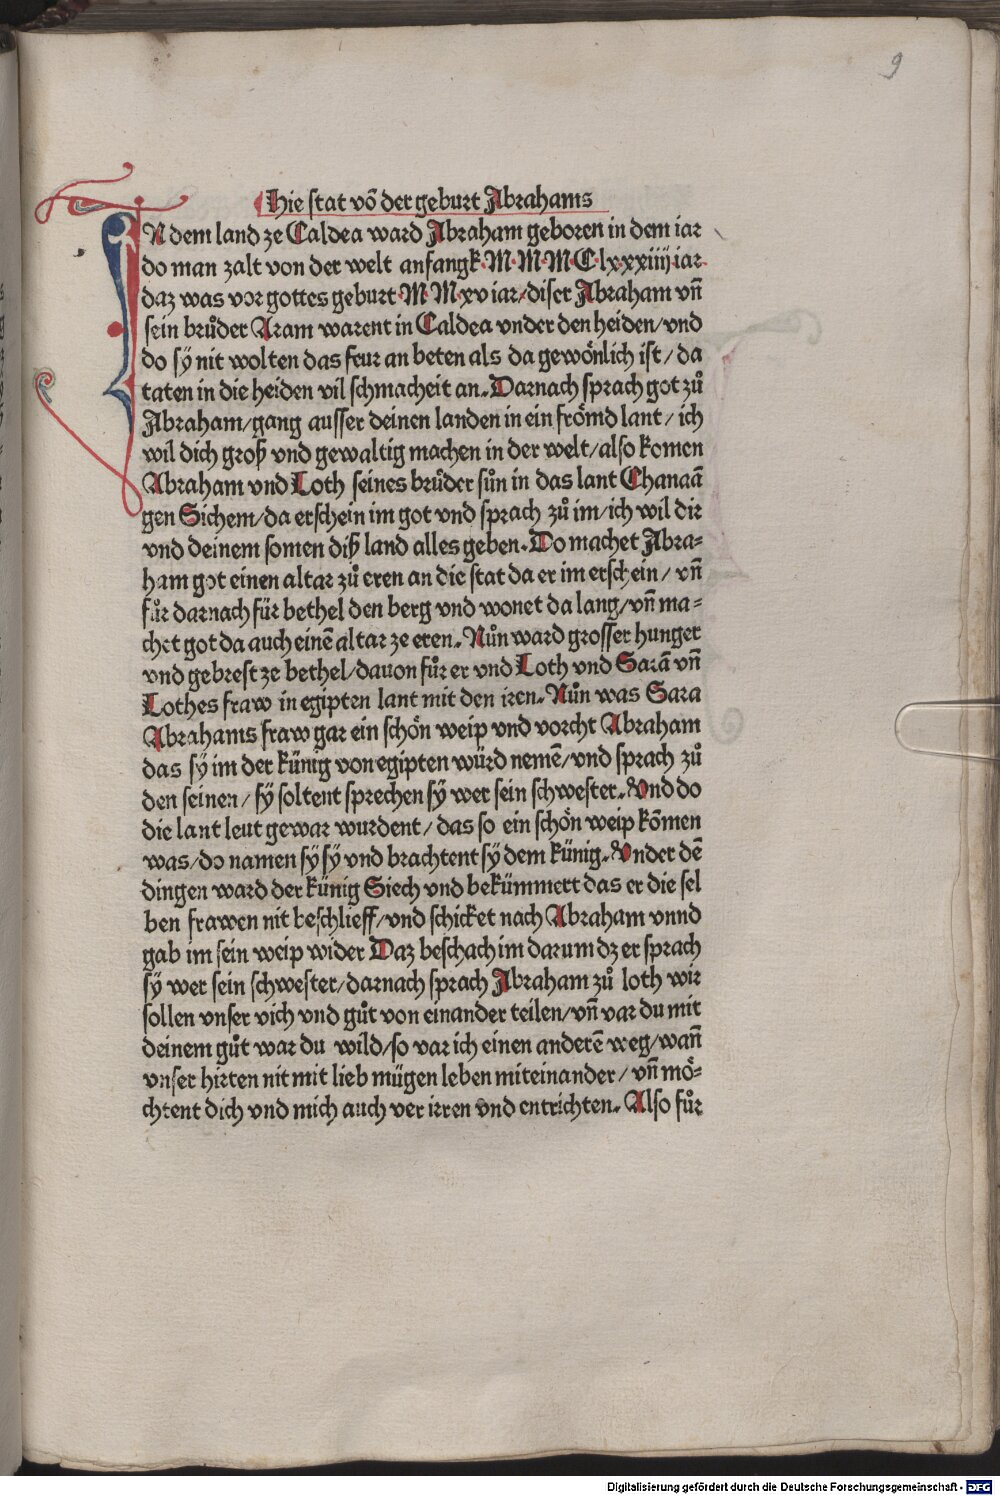 9
Hie stat võ der geburt Abrahams
IN dem land ze Caldea ward Abraham geboren in dem iar
do man zalt von der welt anfangk·M·M·M·C·lxxxiiij·iar·
daz was vor gottes geburt·M·M·xv iar/diser Abraham vñ
sein brůder Aram warent in Caldea vnder den heiden/vnd
do sÿ nit wolten das feur an beten als da gewönlich ist/da
taten in die heiden vil schmacheit an. Darnach sprach got zů
Abraham/gang ausser deinen landen in ein frömd lant/ich
wil dich groß vnd gewaltig machen in der welt/also komen
Abraham vnd Loth seines brůder sůn in das lant Chanaã
gen Sichem/da erschein im got vnd sprach zů im/ich wil dir
vnd deinem somen diß land alles geben. Do machet Abra⸗
ham got einen altar zů eren an die stat da er im erschein/vñ
fůr darnach für bethel den berg vnd wonet da lang/vñ ma⸗
chet got da auch einẽ altar ze eren. Nůn ward grosser hunger
vnd gebrest ze bethel/dauon fůr er vnd Loth vnd Sarã vñ
Lothes fraw in egipten lant mit den iren. Nůn was Sara
Abrahams fraw gar ein schön weip vnd vorcht Abraham
das sÿ im der künig von egipten würd nemẽ/vnd sprach zů
den seinen/sÿ soltent sprechen sÿ wer sein schwester. Vnd do
die lant leut gewar wurdent/das so ein schön weip kõmen
was/do namen sÿ sÿ vnd brachtent sÿ dem künig. Vnder dẽ
dingen ward der künig Siech vnd bekümmert das er die sel
ben frawen nit beschlieff/vnd schicket nach Abraham vnnd
gab im sein weip wider Daz beschach im darum dz er sprach
sÿ wer sein schwester/darnach sprach Abraham zů loth wir
sollen vnser vich vnd gůt von einander teilen/vñ var du mit
deinem gůt war du wild/so var ich einen anderẽ weg/wañ
vnser hirten nit mit lieb mügen leben miteinander/vñ mö⸗
chtent dich vnd mich auch ver irren vnd entrichten. Also fůr
Digitalisierung gefördert durch die Deutsche Forschungsgemeinschaft - DFG